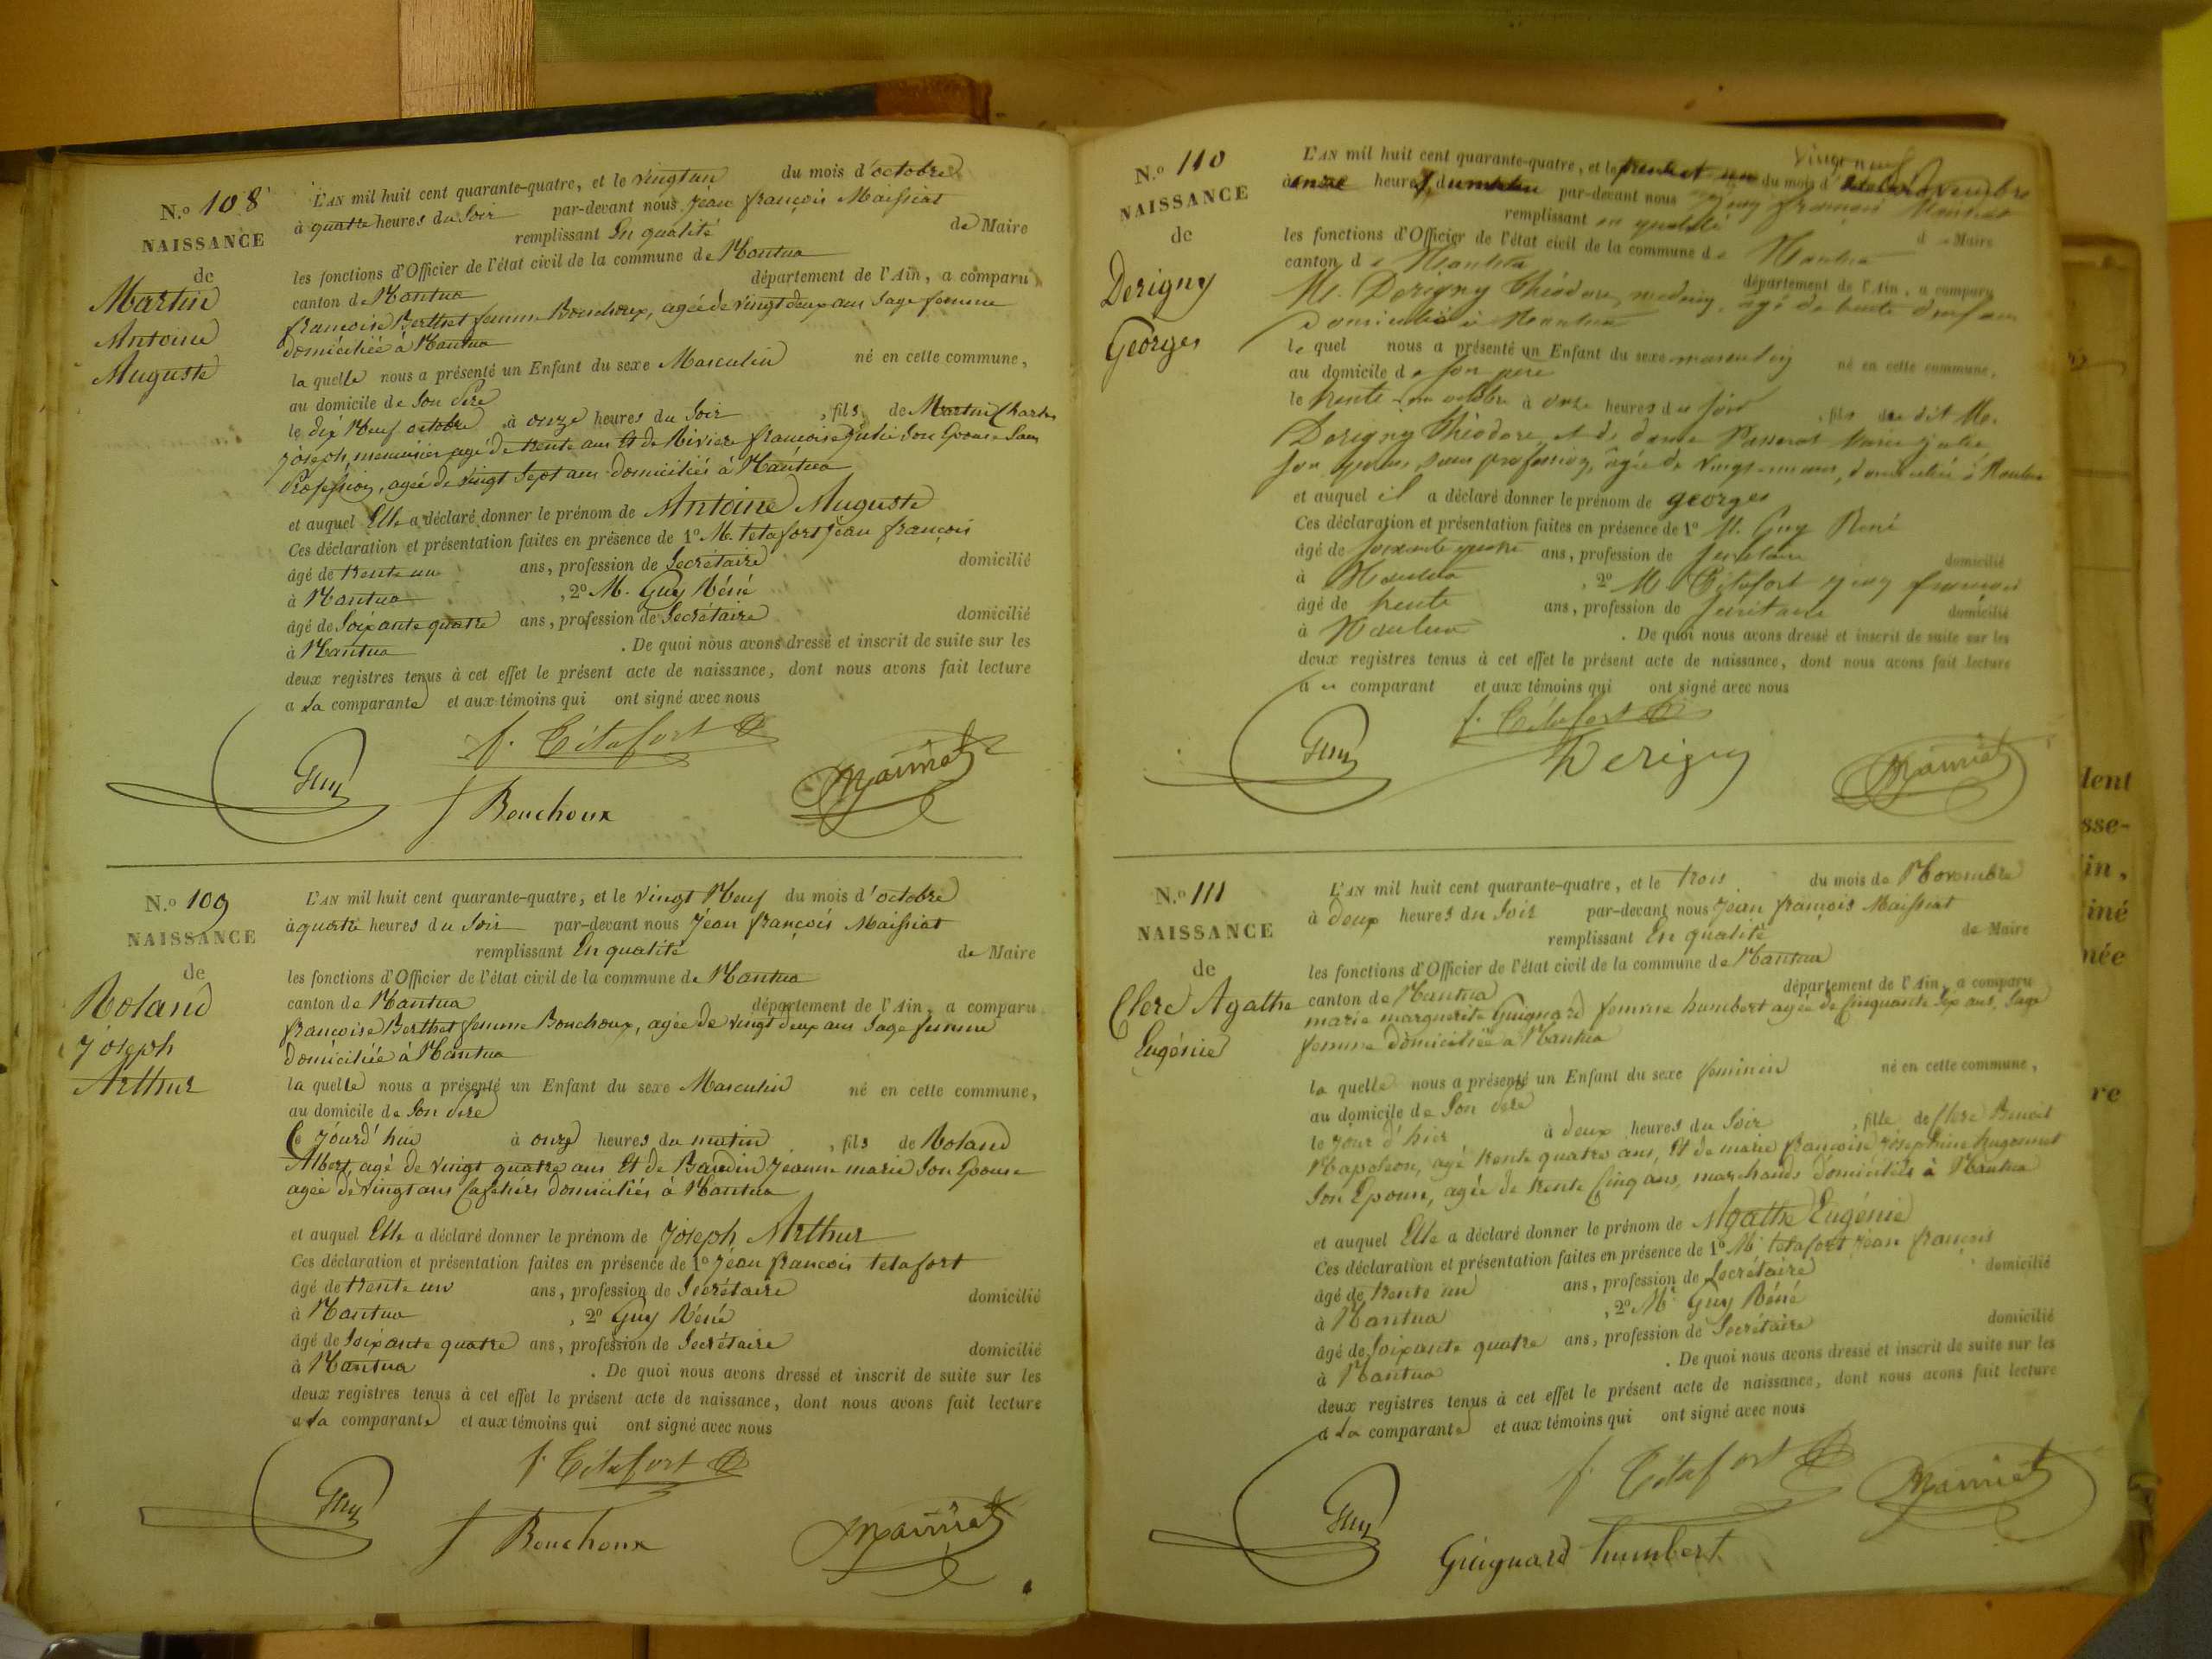 N.º 108
NAISSANCE
de
Martin
Antoine
Auguste
L'AN mil huit cent quarante-quatre, et le vingt un du mois d'octobre
à quatre heures du Soir par-devant nous Jean françois Maissiat
remplissant En qualité de Maire
les fonctions d'Officier de l'état civil de la commune de Nantua
canton de Nantua département de l'Ain, a comparu
françoise Berthet femme Bouchoux, agée de vingt deux ans Sage femme
domiciliée à Nantua
la quelle nous a présenté un Enfant du sexe Masculin né en cette commune,
au domicile de Son Père
le dix Neuf octobre à onze heures du Soir, fils de Martin Charles
joseph menuisier agé de trente ans Et de Riviere françoise Julie Son Epouse Sans
Profession, agée de vingt Sept ans domiciliés à Nantua
et auquel Elle a déclaré donner le prénom de Antoine Auguste
Ces déclaration et présentation faites en présence de 1º M. tetafort jean françois
âgé de trente un ans, profession de Secrétaire domicilié
à Nantua, 2º M. Guy Réné
âgé de Soixante quatre ans, profession de Secrétaire domicilié
à Nantua. De quoi nous avons dressé et inscrit de suite sur les
deux registres tenus à cet effet le présent acte de naissance, dont nous avons fait lecture
a la comparante et aux témoins qui ont signé avec nous
f. Tétafort
Guy
f Bouchoux
Maissiat
N.º 109
NAISSANCE
de
Roland
Joseph
Arthur
L'AN mil huit cent quarante-quatre, et le vingt Neuf du mois d'octobre
à quatre heures du Soir par-devant nous Jean françois Maissiat
remplissant En qualité de Maire
les fonctions d'Officier de l'état civil de la commune de Nantua
canton de Nantua département de l'Ain, a comparu
françoise Berthet femme Bouchoux, agée de vingt deux ans Sage femme
domiciliée à Nantua
la quelle nous a présenté un Enfant du sexe Masculin né en cette commune,
au domicile de Son Père
Ce jourd'hui à onze heures du matin, fils de Roland
Albert, agé de vingt quatre ans Et de Baudin Jeanne marie Son Epouse
agée de vingt ans Cafetiers domiciliés à Nantua
et auquel Elle a déclaré donner le prénom de Joseph Arthur
Ces déclaration et présentation faites en présence de 1º Jean françois tetafort
âgé de trente un ans, profession de Secrétaire domicilié
à Nantua, 2º Guy Réné
âgé de Soixante quatre ans, profession de Secrétaire domicilié
à Nantua. De quoi nous avons dressé et inscrit de suite sur les
deux registres tenus à cet effet le présent acte de naissance, dont nous avons fait lecture
a la comparante et aux témoins qui ont signé avec nous
f. Tétafort
Guy
f Bouchoux
Maissiat
N.º 110
NAISSANCE
de
Derigny
Georges
vingt neuf
L'AN mil huit cent quarante-quatre, et le trente et un du mois d' novembre
à onze heures du matin par-devant nous jean françois Maissiat
remplissant en qualité de Maire
les fonctions d'Officier de l'état civil de la commune de Nantua
canton de Nantua département de l'Ain, a comparu
M. Derigny Théodore, medecin, agé de trente deux ans
Domicilié à Nantua
le quel nous a présenté un Enfant du sexe masculin né en cette commune,
au domicile de son pere
le trente un octobre à onze heures du soir, fils du dit M.
Derigny Théodore, et de dame Passerat Marie julie
son épouse, sans profession, âgée de vingt ans, domiciliés à Nantua
et auquel il a déclaré donner le prénom de georges
Ces déclaration et présentation faites en présence de 1º M. Guy René
âgé de soixante quatre ans, profession de secrétaire domicilié
à Nantua, 2º M Tétafort jean françois
âgé de trente ans, profession de secrétaire domicilié
à Nantua. De quoi nous avons dressé et inscrit de suite sur les
deux registres tenus à cet effet le présent acte de naissance, dont nous avons fait lecture
au comparant et aux témoins qui ont signé avec nous
f. Tétafort
Guy
Derigny
Maissiat
N.º 111
NAISSANCE
de
Clerc Agathe
Eugénie
L'AN mil huit cent quarante-quatre, et le trois du mois de Novembre
à deux heures du Soir par-devant nous Jean françois Maissiat
remplissant En qualité de Maire
les fonctions d'Officier de l'état civil de la commune de Nantua
canton de Nantua département de l'Ain, a comparu
marie marguerite Guignard femme humbert agée de Cinquante Six ans, Sage
femme domiciliée à Nantua
la quelle nous a présenté un Enfant du sexe feminin né en cette commune,
au domicile de Son Père
le jour d'hier à deux heures du Soir, fille de Clerc Benoit
Napoleon, agé trente quatre ans, Et de marie françoise joséphine hugonnet
Son Epouse, agée de trente Cinq ans, marchands domiciliés à Nantua
et auquel Elle a déclaré donner le prénom de Agathe Eugénie
Ces déclaration et présentation faites en présence de 1º M. tetafort jean françois
âgé de trente un ans, profession de Secrétaire domicilié
à Nantua, 2º M. Guy Réné
âgé de Soixante quatre ans, profession de Secrétaire domicilié
à Nantua. De quoi nous avons dressé et inscrit de suite sur les
deux registres tenus à cet effet le présent acte de naissance, dont nous avons fait lecture
a la comparante et aux témoins qui ont signé avec nous
f. Tétafort
Guy
Guignard humbert
Maissiat
lent
sse-
in,
iné
née
re